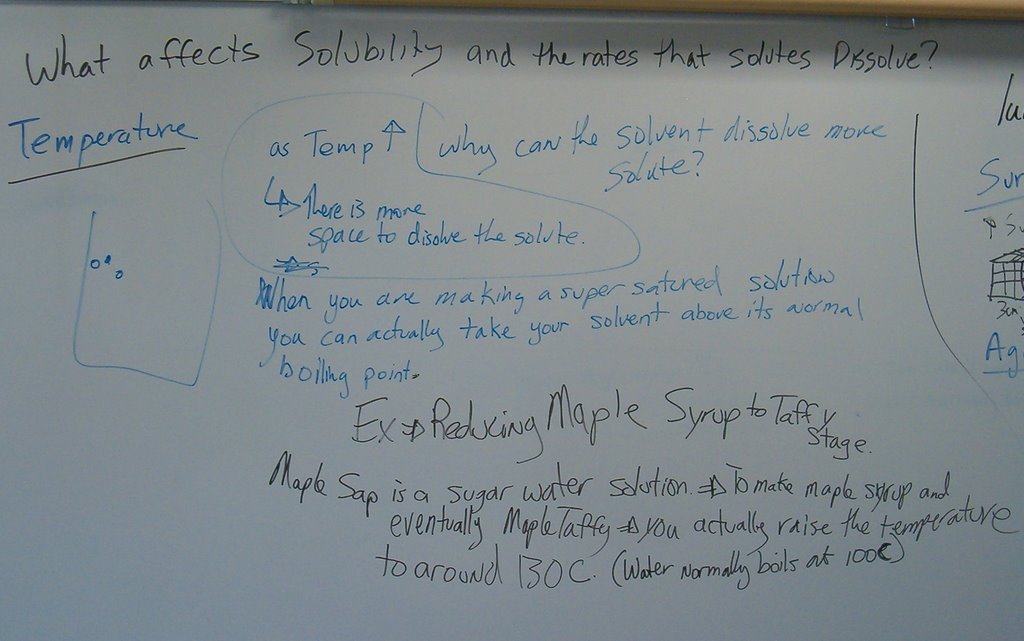 What affects Solubility and the rates that solutes Dissolve?
Temperature
as Temp ↑
why can the solvent dissolve more
solute?
↳ There is more
space to disolve the solute.
When you are making a super satured solution
you can actually take your solvent above its normal
boiling point.
Ex ⇒ Reducing Maple Syrup to Taffy
Stage.
Maple Sap is a sugar water solution. ⇒ To make maple syrup and
eventually Maple Taffy ⇒ you actually raise the temperature
to around 130C. (Water normally boils at 100C)
Sur
↑ Su
3cm
Ag